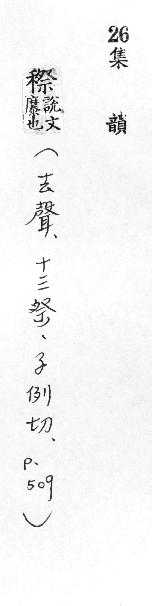 26 集 韻
穄 說文 也（去聲、十三祭、子例切、p.509）